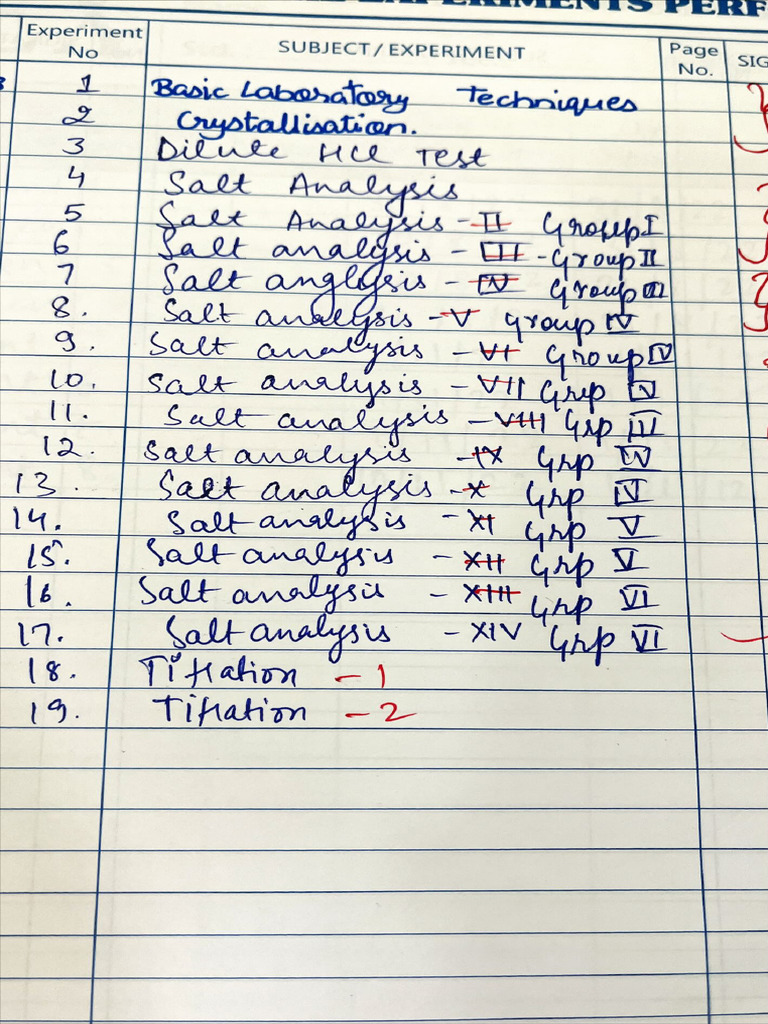 EXPERIMENTS PERF
Experiment No SUBJECT / EXPERIMENT Page No. SIG
1 Basic Laboratory Techniques
2 Crystallisation.
3 Dilute HCl Test
4 Salt Analysis
5 Salt Analysis - II Group I
6 Salt analysis - III - Group II
7 Salt analysis - IV Group III
8. Salt analysis - V Group IV
9. Salt analysis - VI Group IV
10. Salt analysis - VII Grp IV
11. Salt analysis - VIII Grp III
12. Salt analysis - IX Grp IV
13. Salt analysis - X Grp IV
14. Salt analysis - XI Grp V
15. Salt analysis - XII Grp V
16. Salt analysis - XIII Grp VI
17. Salt analysis - XIV Grp VI
18. Titration - 1
19. Titration - 2